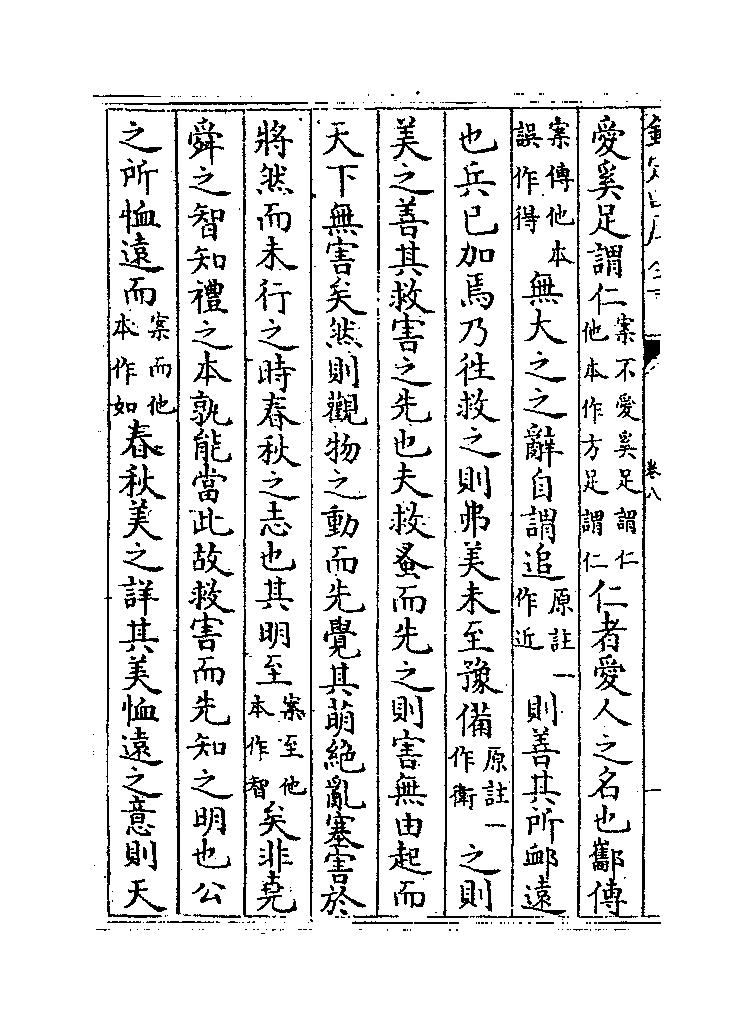 卷八
愛奚足謂仁案不愛奚足謂仁他本作方足謂仁仁者愛人之名也酅傳
案傳他本誤作得無大之之辭自謂追原註一作近則善其所卹遠
也兵已加焉乃往救之則弗美未至豫備原註一作衛之則
美之善其救害之先也夫救蚤而先之則害無由起而
天下無害矣然則觀物之動而先覺其萌絶亂塞害於
將然而未行之時春秋之志也其明至案至他本作智矣非堯
舜之智知禮之本孰能當此故救害而先知之明也公
之所恤遠而案而他本作如春秋美之詳其美恤遠之意則天